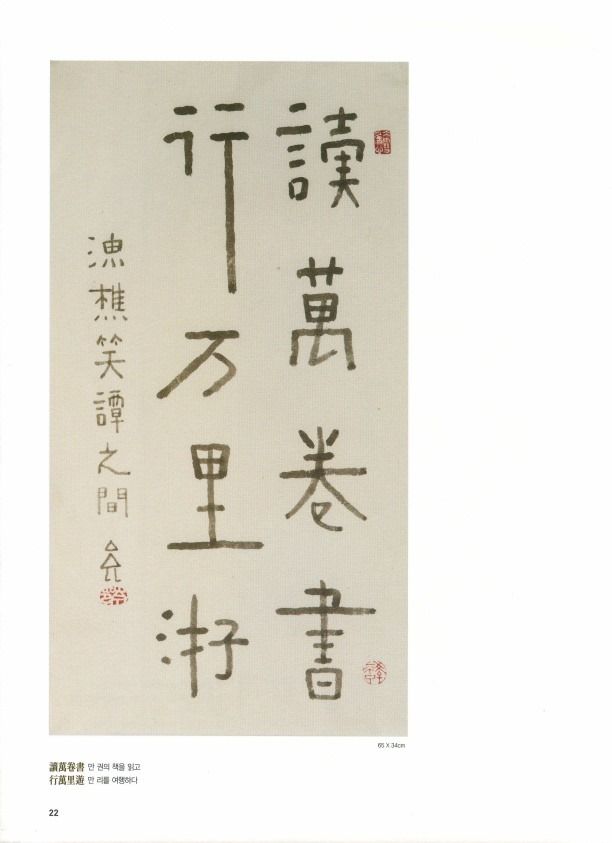 讀萬卷書
行万里游
漁樵笑譚之間
65 X 34cm
讀萬卷書 만 권의 책을 읽고
行萬里遊 만 리를 여행하다
22